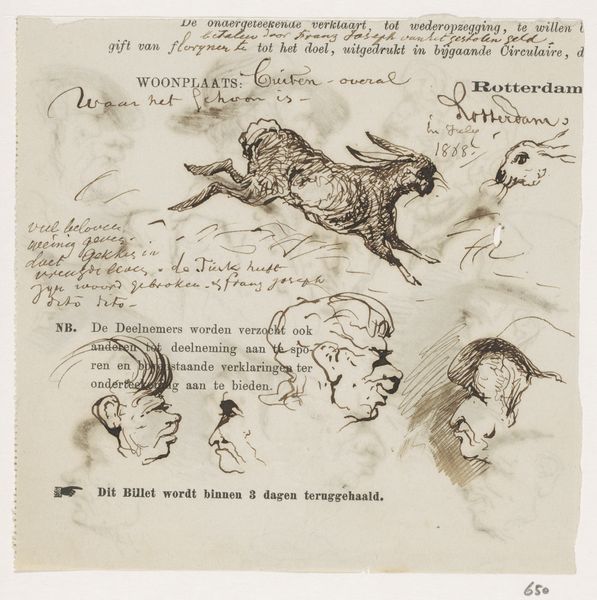 De ondergeteekende verklaart, tot wederopzegging, te willen
betalen door Franz Joseph van het gestolen geld
gift van te tot het doel, uitgedrukt in bijgaande Circulaire, d
WOONPLAATS: Buiten - overal
Rotterdam
Waar het schoon is -
Rotterdam
in July
1868
veel beloven
weinig geven
doet gekken in
vreugde leven. de Turk heeft
zyn woord gebroken. & franz joseph
dito dito -
NB. De Deelnemers worden verzocht ook
anderen tot deelneming aan te spo-
ren en bovenstaande verklaringen ter
onderteekening aan te bieden.
Dit Billet wordt binnen 3 dagen teruggehaald.
650